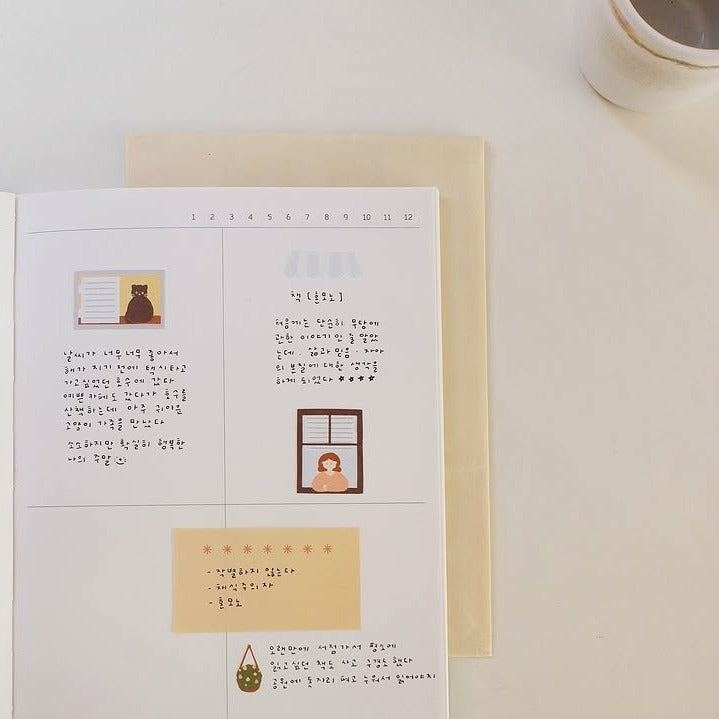 1 2 3 4 5 6 7 8 9 10 11 12
날씨가 너무너무 좋아서
해가 지기 전에 택시타고
가고싶었던 호수에 갔다
예쁜 카페도 갔다가 호수를
산책하는데 아주 귀여운
고양이 가족을 만났다
소소하지만 확실히 행복한
나의 주말
책 [혼모노]
처음에는 단순히 무당에
관한 이야기인 줄 알았
는데, 삶과 믿음 · 자아
의 본질에 대한 생각을
하게 되었다 ★★★★
- 작별하지 않는다
- 채식주의자
- 혼모노
오랜만에 서점가서 평소에
읽고싶던 책도 사고 구경도 했다
공원에 돗자리 펴고 누워서 읽어야지